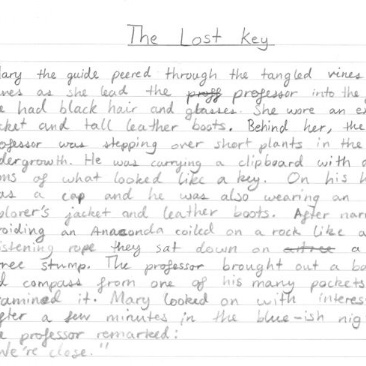 The Lost key
Mary the guide peered through the tangled vines
as she lead the professor into the
had black hair and glasses. She wore an
and tall leather boots. Behind her, the
professor was stepping over short plants in the
undergrowth. He was carrying a clipboard with
of what looked like a key. On his
was a cap and he was also wearing an
explorer's jacket and leather boots. After
avoiding an Anaconda coiled on a rock like a
glistening rope they sat down on a
tree stump. The professor brought out a
compass from one of his many pockets
examined it. Mary looked on with
After a few minutes in the blue-ish
professor remarked:
"We're close."